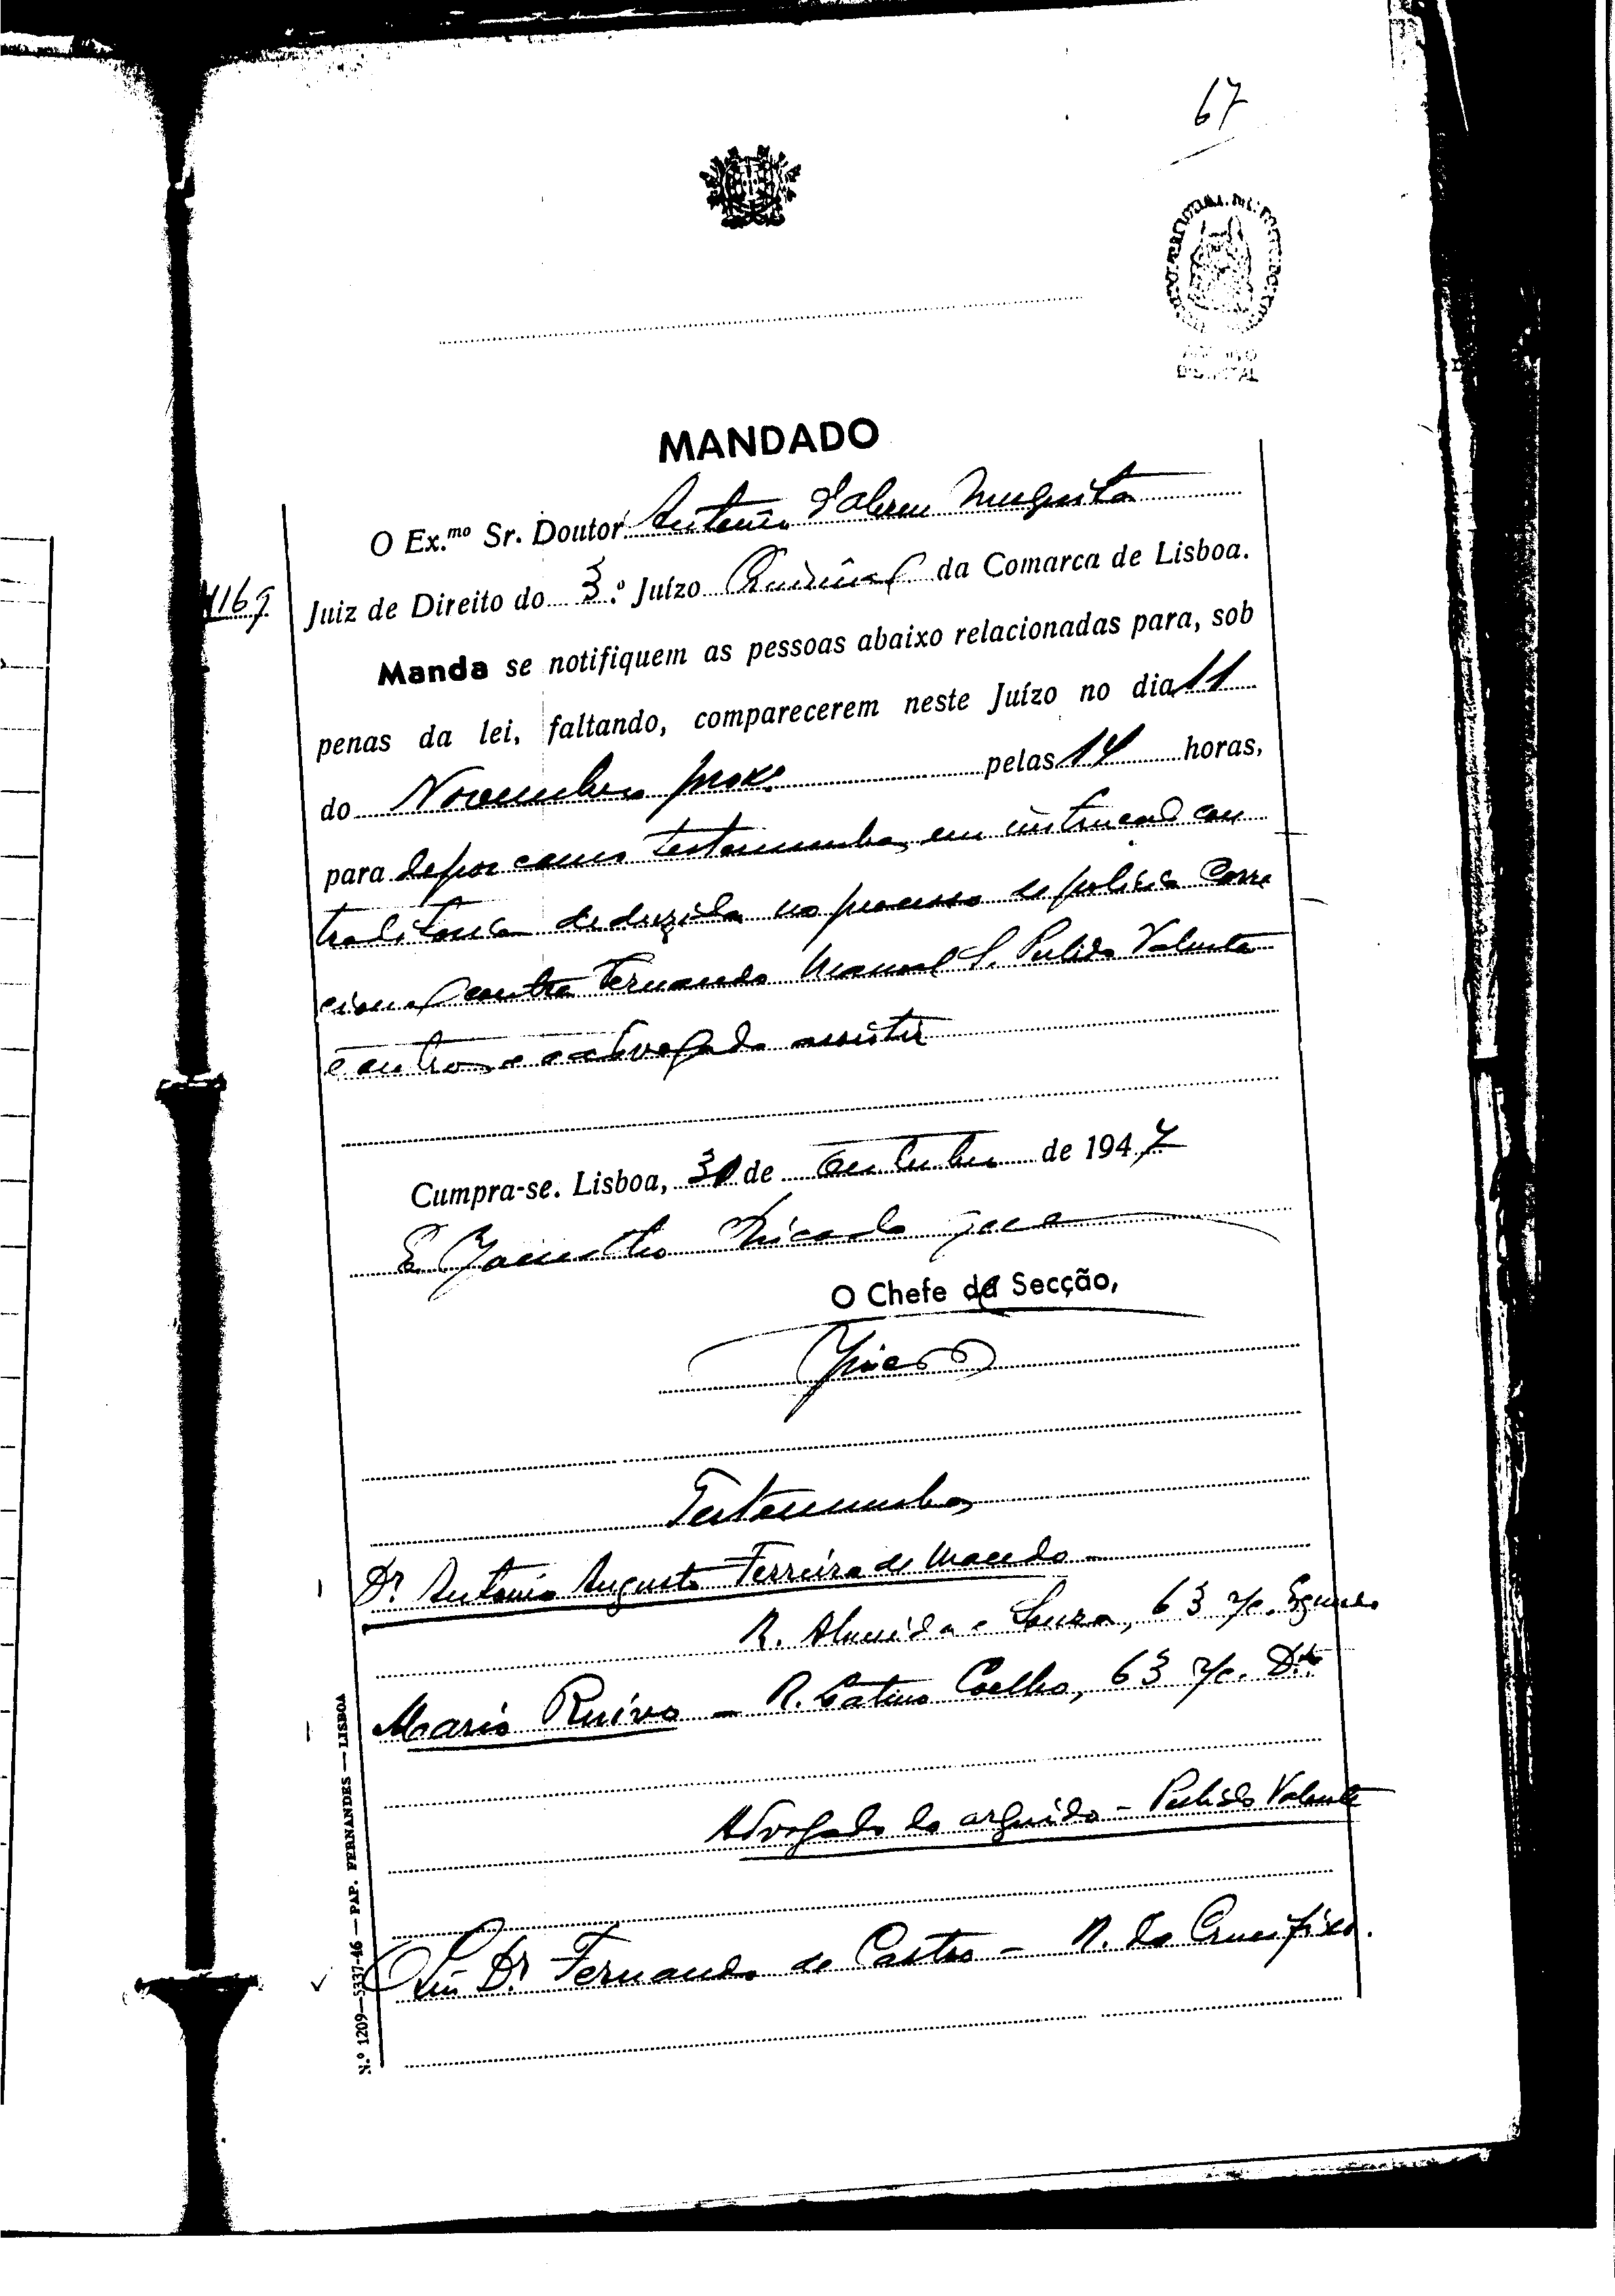 67
MANDADO
O Ex.mo Sr. Doutor Antonio d'Abreu Mesquita
Juiz de Direito do 3.º Juízo Criminal da Comarca de Lisboa.
Manda se notifiquem as pessoas abaixo relacionadas para, sob
penas da lei, faltando, comparecerem neste Juízo no dia 11
do Novembro prox.º pelas 14 horas,
para depor como testemunhas em instrução con
traditoria deduzida no processo de policia corre
cional contra Fernando Manuel S. Pulido Valente
e outros e o advogado assistir
Cumpra-se. Lisboa, 30 de Outubro de 1947
E
O Chefe da Secção,
Testemunhas
Dr. Antonio Augusto Ferreira de Macedo -
R. Almeida e Souza, 63 r/c. Esquerdo
Mario Ruivo - R. Latino Coelho, 63 r/c. Dto
Advogado do arguido - Pulido Valente
Dr. Fernando de Castro - R. do Crucifixo.
N.º 1209-5337-46 - PAP. FERNANDES - LISBOA